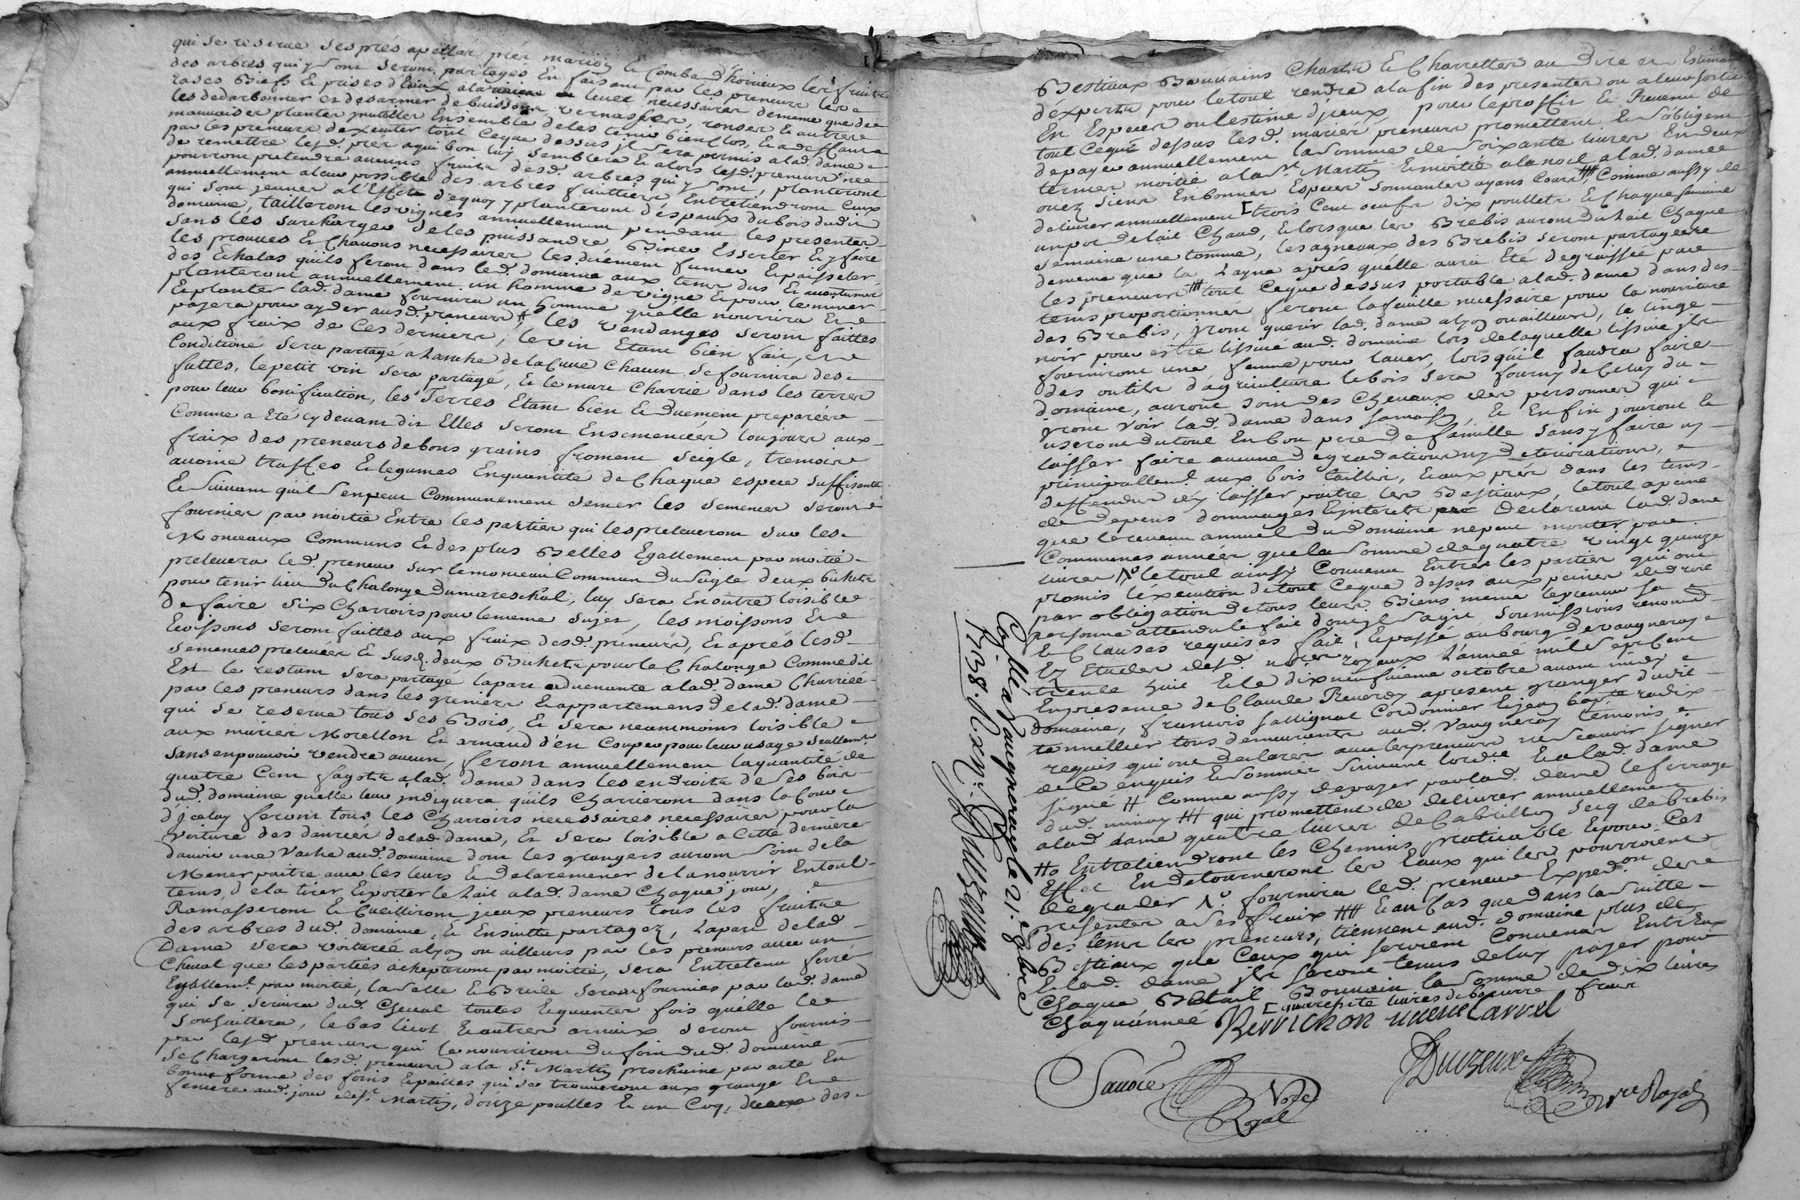 qui se reserve ses prés apellés prés marion & Combe d'horieux les fruits
des arbres qui y sont seront partagés En faisant par les preneurs les
rases Biefs & prises d'Eaux a la levée necessaires de meme que de
les dedarbonner et desarmer de buissons vernasses, ronses & autres
mauvaises plantes jnutilles Ensemble de les tenir bien clos, & a deffaut
par les preneurs d'executer tout Ceque dessus jl sera permis a lad. dame
de remettre lesd. prés a qui bon luy semblera & alors lesd. preneurs ne
pourront pretendre aucuns fruits desd. arbres qui y sont, planteront
annuellement a leur possible des arbres fruittiers, Entretiendront Ceux
qui sont jeunes a l'Effet de quoy y planteront d'Espaux du bois dudit
domaine, tailleront les vignes annuellement pendant les presentes
sans les surcharger de les puissandre, Biner Esserter & y faire
les prouves & Chavons necessaires les duement fumer & paisseler
des Echalas quils feront dans led. domaine aux tems dus &
planteront annuellement un homme de vigne & pour le miner
& planter lad. dame fournira un homme quelle nourira & 
payera pour ayder auxd. preneurs # les vendanges seront faittes
aux fraix de Ces derniers, le vin Etant bien fait, &
Conditioné sera partagé a lanche de la Cuve Chacun se fournira des
futtes, le petit vin sera partagé, & le marc Charrié dans les terres
pour leur bonification, les Terres Etant bien & duement preparées
Comme a Eté Cy devant dit Elles seront Ensemencées toujours aux
fraix des preneurs de bons grains froment seigle, tremois
avoine truffes & legumes En quantité de Chaque espece suffisante
& suivant qu'il s'en peut Communement semer les semences seront
fournies par moitié Entre les parties qui les preleveront sur les
Monceaux Communs & des plus Belles Egallement par moitié
prelevera led. preneur sur le monceau Commun du seigle deux bichets
pour tenir lieu du Chalonge du mareschal, luy sera En outre loisible
de faire six Charrois pour le meme sujet, les moissons &
Ecossons seront faittes aux fraix desd. preneurs, & après lesd.
semences prelevées & susd. deux Bichets pour le Chalonge Comme dit
Est le restant sera partagé la part advenante a lad. dame Charriée
par les preneurs dans les greniers & appartemens de lad. dame
qui se reserve tous ses Bois, & sera neanmoins loisible
aux mariés Morellon & arnaud d'en Couper pour leur usage seullemt.
sans en pouvoir vendre aucun, feront annuellement la quantité de
quatre Cent fagots a lad. dame dans les endroits de ses bois
dud. domaine quelle leur jndiquera quils Charrieront dans la Cour
d'jceluy feront tous les Charrois necessaires necessaires pour la
voiture des danrées de lad. dame, & sera loisible a Cette derniere
d'avoir une vache aud. domaine dont les grangers auront soin de la
Mener paitre avec les leurs & de la remener de la nourir En tout
tems, de la tirer, & porter le Lait a lad. dame Chaque jour,
Ramasseront & Cueilliront jceux preneurs tous les fruits
des arbres dud. domaine & Ensuitte partagez, la part de lad.
Dame sera voiturée a Lyon ou ailleurs par les preneurs avec un
Cheval que les parties achepteront par moitié, sera Entretenu ferré
Egallemt. par moitié, la selle & Bride seront fournies par lad. dame
qui se servira dud. Cheval toutes & quantes fois quelle le
souhaittera, le bas licot & autres arnaix seront fournis
par lesd. preneurs qui le nourriront du foin dud. domaine
se Chargeront lesd. preneurs a la St. Martin prochaine par acte En
bonne forme des foins & pailles qui se trouveront aux grange &
feniere aud. jour de St. Martin, d'ouze poulles & un Coq, des
Bestiaux Bauvains Chartis & Charrettes au dire & Estime
d'experts pour le tout rendre a la fin des presentes ou a leur sortie
En Especes ou l'estime d'jceux, pour le proffit & Revenu de
tout Ceque dessus lesd. mariés preneurs promettent & s'obligent
de payer annuellement la somme de soixante livres En deux
termes moitié a la St. Martin & moitié a la noel a lad. damee
ouez siens En bonnes Especes sonnantes ayans Cours #### Comme aussy de
delivrer annuellement [ trois Cent oeufs dix poullets & Chaque semaine
un pot de lait Chaud, & lorsque les Brebis auront du Lait Chaque
semaine une tomme, les agneaux des Brebis seront partagés
de meme que la Layna aprés quélle aura Eté degraissée par
les preneurs ### tout Ceque dessus portable a lad. dame dans des
tems proportionnés feront la feuille necessaire pour la nourriture
des Brebis, jront querir lad. dame a Lyon ou ailleurs, le linge
noir pour estre lissivé aud. domaine lors de laquelle lissive jls
fourniront une femme pour laver, lorsqu'il faudra faire
des outils d'agriculture le bois sera fourny de Celuy du
domaine, auront soin des Chevaux des personnes qui
jront voir lad. dame dans sa maison & En fin jouiront &
useront du tout En bon pere de famille sans y faire ny
laisser faire aucune degradation ny deterioration,
principallemt. aux bois taillis, & aux prés dans les tems
deffendus d'y laisser paitre les Bestiaux, le tout a peine
de depens dommages & jnterets Declarant lad. dame
que le revenu annuel du domaine ne peut monter par
Communes années que la somme de quatre vingt quinze
livres 1° le tout ainsy Convenu Entre les parties qui ont
promis l'execution de tout Ceque dessus aux peines de droit
par obligation de tous leurs Biens meme le preneur sa
personne attendu le fait dont jl s'agit soumissions renond.
& Clauses requises fait & passé au bourg de vaugneray
Ez Etudes desd. nores. royaux L'année mil sept cent
trente huit & le dix neufvieme octobre avant midy
En presence de Claude Reverdy a present granger dudit
domaine, francois sallignat Cordonnier & Jean bapte. radix
tonnellier tous demeurants aud. Vaugneray temoins
requis qui ont declaré avec les preneurs ne scavoir signer
de Ce enquis & sommés suivant l'ord.ce & a lad. dame
signé # Comme aussy de payer par lad. dame le ferrage
dud. minoy ### qui promettent de delivrer annuellement
a lad. dame quatre livres de Cabrillon secq de Brebis
## Entretiendront les Chemins praticable & pour Cet
Effet En detourneront les Eaux qui les pourroient
degrader 1° fournira led. preneur Exped.on des
presentes a ses fraix #### & au Cas que dans la suitte
des tems les preneurs, tiennent aud. domaine plus de
Bestiaux que Ceux qui seroient Convenus Entr'Eux
& lad. dame jls seront tenus de luy payer pour
Chaque Betail Bouvain la somme de dix livres
Chaquánnée [ quarente livres de beurre frais
Rervichon veuve Carvel
Savoie
Note
Royal
Duizeux
Nre Royal
Collé a Vaugneray le 21. 8bre
1738. Rx